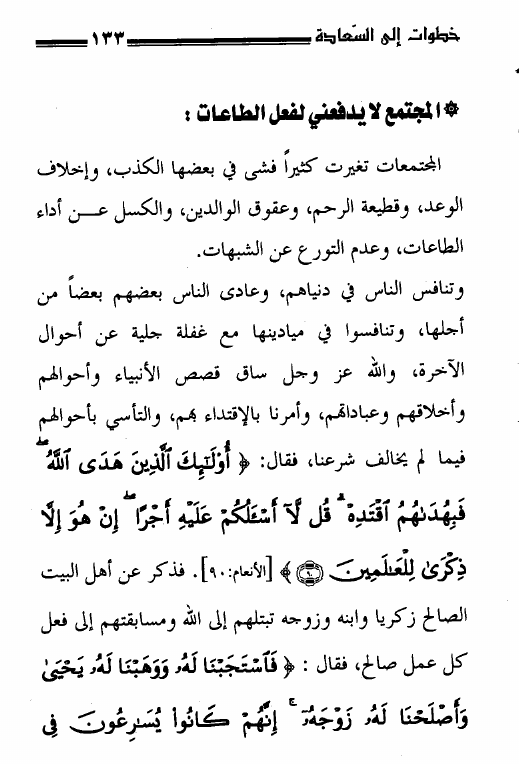 خطوات إلى السّعادة ١٣٣
۞ المجتمع لا يدفعني لفعل الطاعات :
المجتمعات تغيرت كثيراً فشى في بعضها الكذب، وإخلاف
الوعد، وقطيعة الرحم، وعقوق الوالدين، والكسل عـــن أداء
الطاعات، وعدم التورع عن الشبهات.
وتنافس الناس في دنياهم، وعادى الناس بعضهم بعضاً من
أجلها، وتنافسوا في ميادينها مع غفلة جلية عن أحوال
الآخرة، والله عز وجل ساق قصص الأنبياء وأحوالهم
وأخلاقهم وعباداتهم، وأمرنا بالإقتداء بهم، والتأسي بأحوالهم
فيما لم يخالف شرعنا، فقال: ﴿ أُوْلَـٰٓئِكَ ٱلَّذِينَ هَدَى ٱللَّهُ ۖ
فَبِهُدَىٰهُمُ ٱقْتَدِهْ ۗ قُل لَّآ أَسْـَٔلُكُمْ عَلَيْهِ أَجْرًا ۖ إِنْ هُوَ إِلَّا
ذِكْرَىٰ لِلْعَـٰلَمِينَ ۝٩٠ ﴾ [الأنعام:٩٠]. فذكر عن أهل البيت
الصالح زكريا وابنه وزوجه تبتلهم إلى الله ومسابقتهم إلى فعل
كل عمل صالح، فقال : ﴿ فَٱسْتَجَبْنَا لَهُۥ وَوَهَبْنَا لَهُۥ يَحْيَىٰ
وَأَصْلَحْنَا لَهُۥ زَوْجَهُۥٓ ۚ إِنَّهُمْ كَانُوا۟ يُسَـٰرِعُونَ فِى